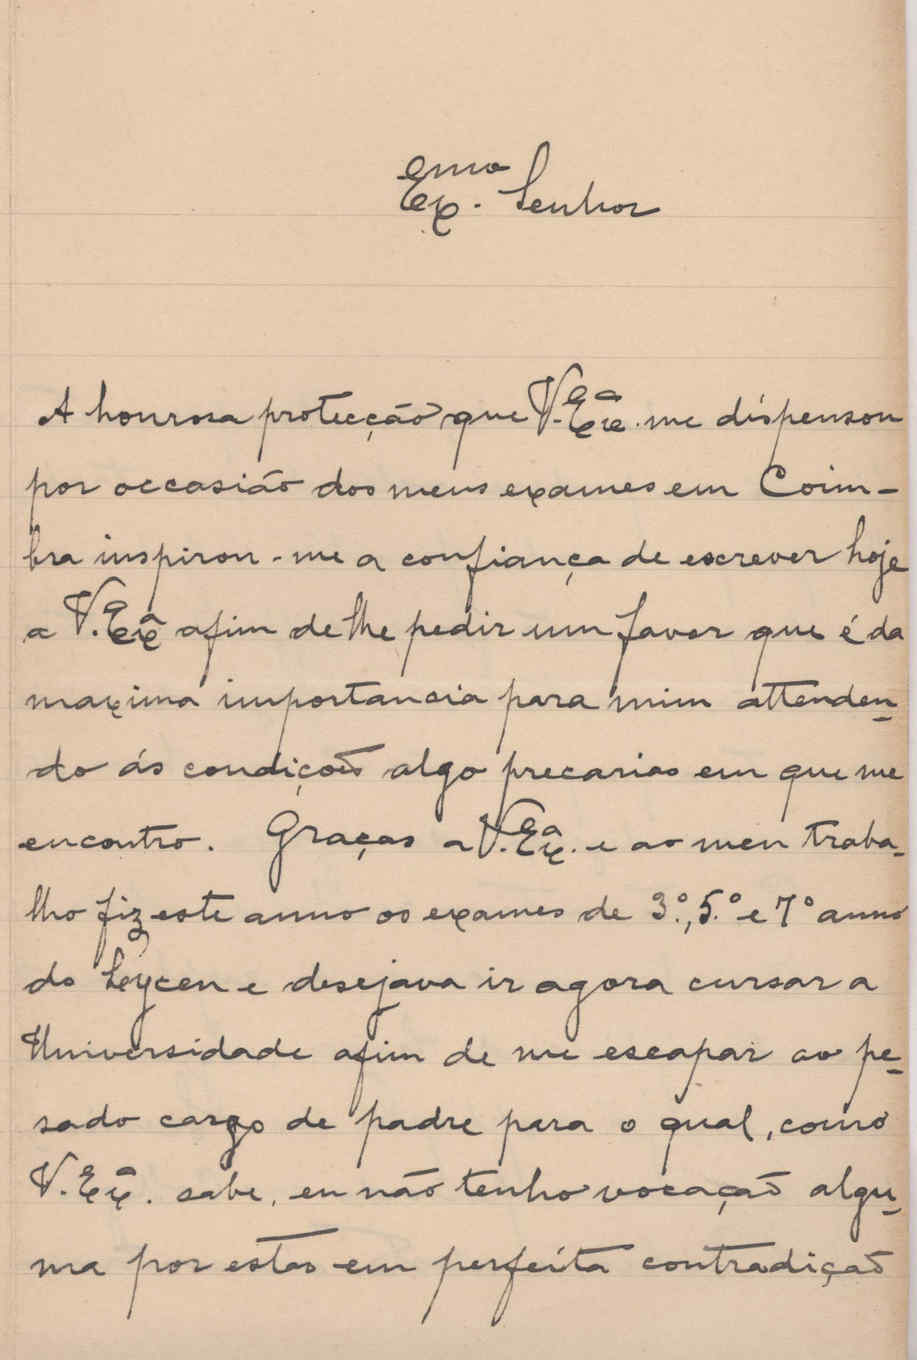 Exmo. Senhor
A honrosa protecção que V. Exa. me dispensou
por occasião dos meus exames em Coim-
bra inspirou-me a confiança de escrever hoje
a V. Exa afim de lhe pedir um favor que é da
maxima importancia para mim attenden-
do ás condições algo precarias em que me
encontro. Graças a V. Exa. e ao meu traba-
lho fiz este anno os exames de 3.º, 5.º e 7º anno
do Lyceu e desejava ir agora cursar a
Universidade afim de me escapar ao pe-
sado cargo de padre para o qual, como
V. Exa. sabe, eu não tenho vocação algu-
ma por estar em perfeita contradição